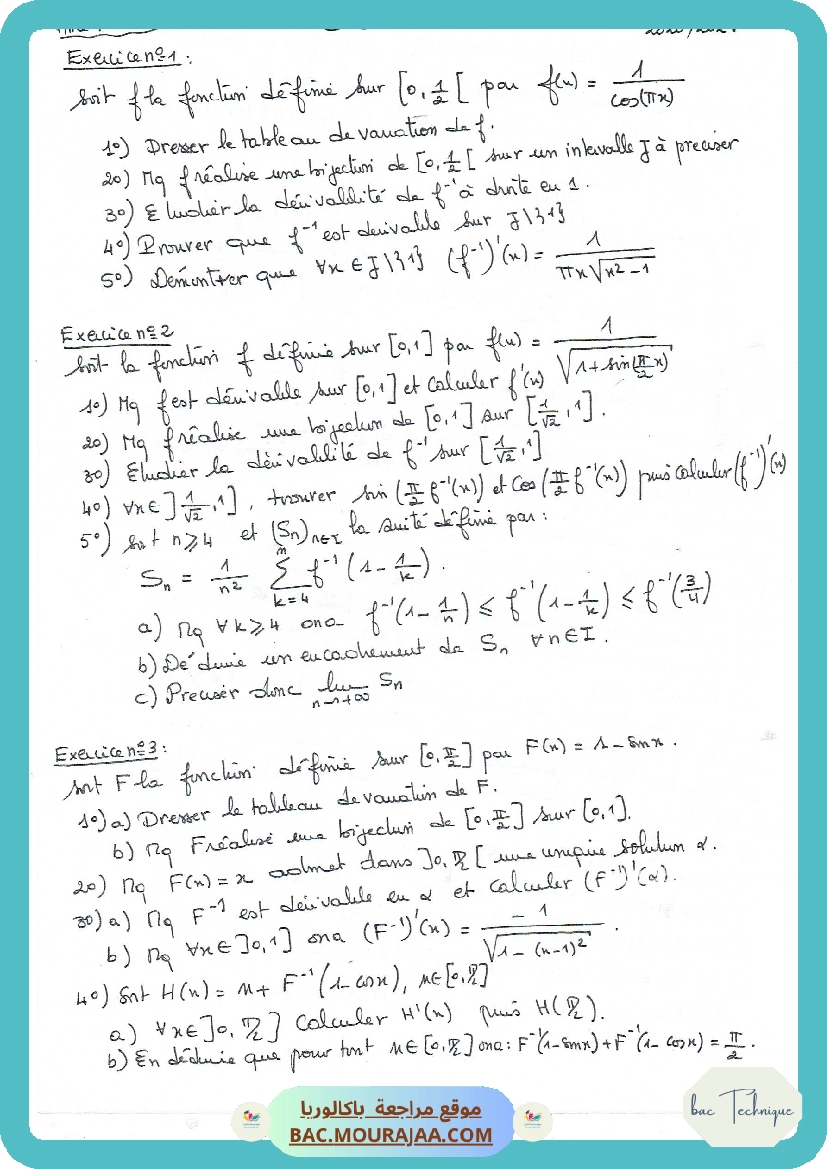 Exercice n°1 :
Soit f la fonction définie sur [0, 1/2 [ par f(x) = 1/cos(πx)
1°) Dresser le tableau de variation de f.
2°) Mq f réalise une bijection de [0, 1/2 [ sur un intervalle J à préciser
3°) Etudier la dérivabilité de f⁻¹ à droite en 1.
4°) Prouver que f⁻¹ est derivable sur J\{1}
5°) Démontrer que ∀x ∈ J\{1} (f⁻¹)'(x) = 1/(πx√(x²-1))
Exercice n°2
Soit la fonction f définie sur [0,1] par f(x) = 1/√(1+sin(π/2 x))
1°) Mq f est dérivable sur [0,1] et calculer f'(x)
2°) Mq f réalise une bijection de [0,1] sur [1/√2, 1].
3°) Etudier la dérivabilité de f⁻¹ sur [1/√2, 1]
4°) ∀x ∈ ]1/√2, 1], trouver sin(π/2 f⁻¹(x)) et cos(π/2 f⁻¹(x)) puis calculer (f⁻¹)'(x)
5°) Soit n ≥ 4 et (Sn)n∈I la suite définie par :
Sn = 1/n² Σ_{k=4}^{n} f⁻¹(1 - 1/k).
a) Mq ∀k ≥ 4 on a f⁻¹(1 - 1/n) ≤ f⁻¹(1 - 1/k) ≤ f⁻¹(3/4)
b) Déduire un encadrement de Sn ∀n ∈ I.
c) Preciser donc lim_{n→+∞} Sn
Exercice n°3 :
Soit F la fonction définie sur [0, π/2] par F(x) = 1 - sin x.
1°) a) Dresser le tableau de variation de F.
b) Mq F réalise une bijection de [0, π/2] sur [0,1].
2°) Mq F(x) = x admet dans ]0, π/2[ une unique solution α.
3°) a) Mq F⁻¹ est dérivable en α et calculer (F⁻¹)'(α).
b) Mq ∀x ∈ ]0,1] on a (F⁻¹)'(x) = -1/√(1-(x-1)²).
4°) Soit H(x) = x + F⁻¹(1-cosx), x ∈ [0, π/2]
a) ∀x ∈ ]0, π/2] calculer H'(x) puis H(π/2).
b) En déduire que pour tout x ∈ [0, π/2] on a : F⁻¹(1-sinx) + F⁻¹(1-cosx) = π/2.
موقع مراجعة باكالوريا
BAC.MOURAJAA.COM
bac Technique